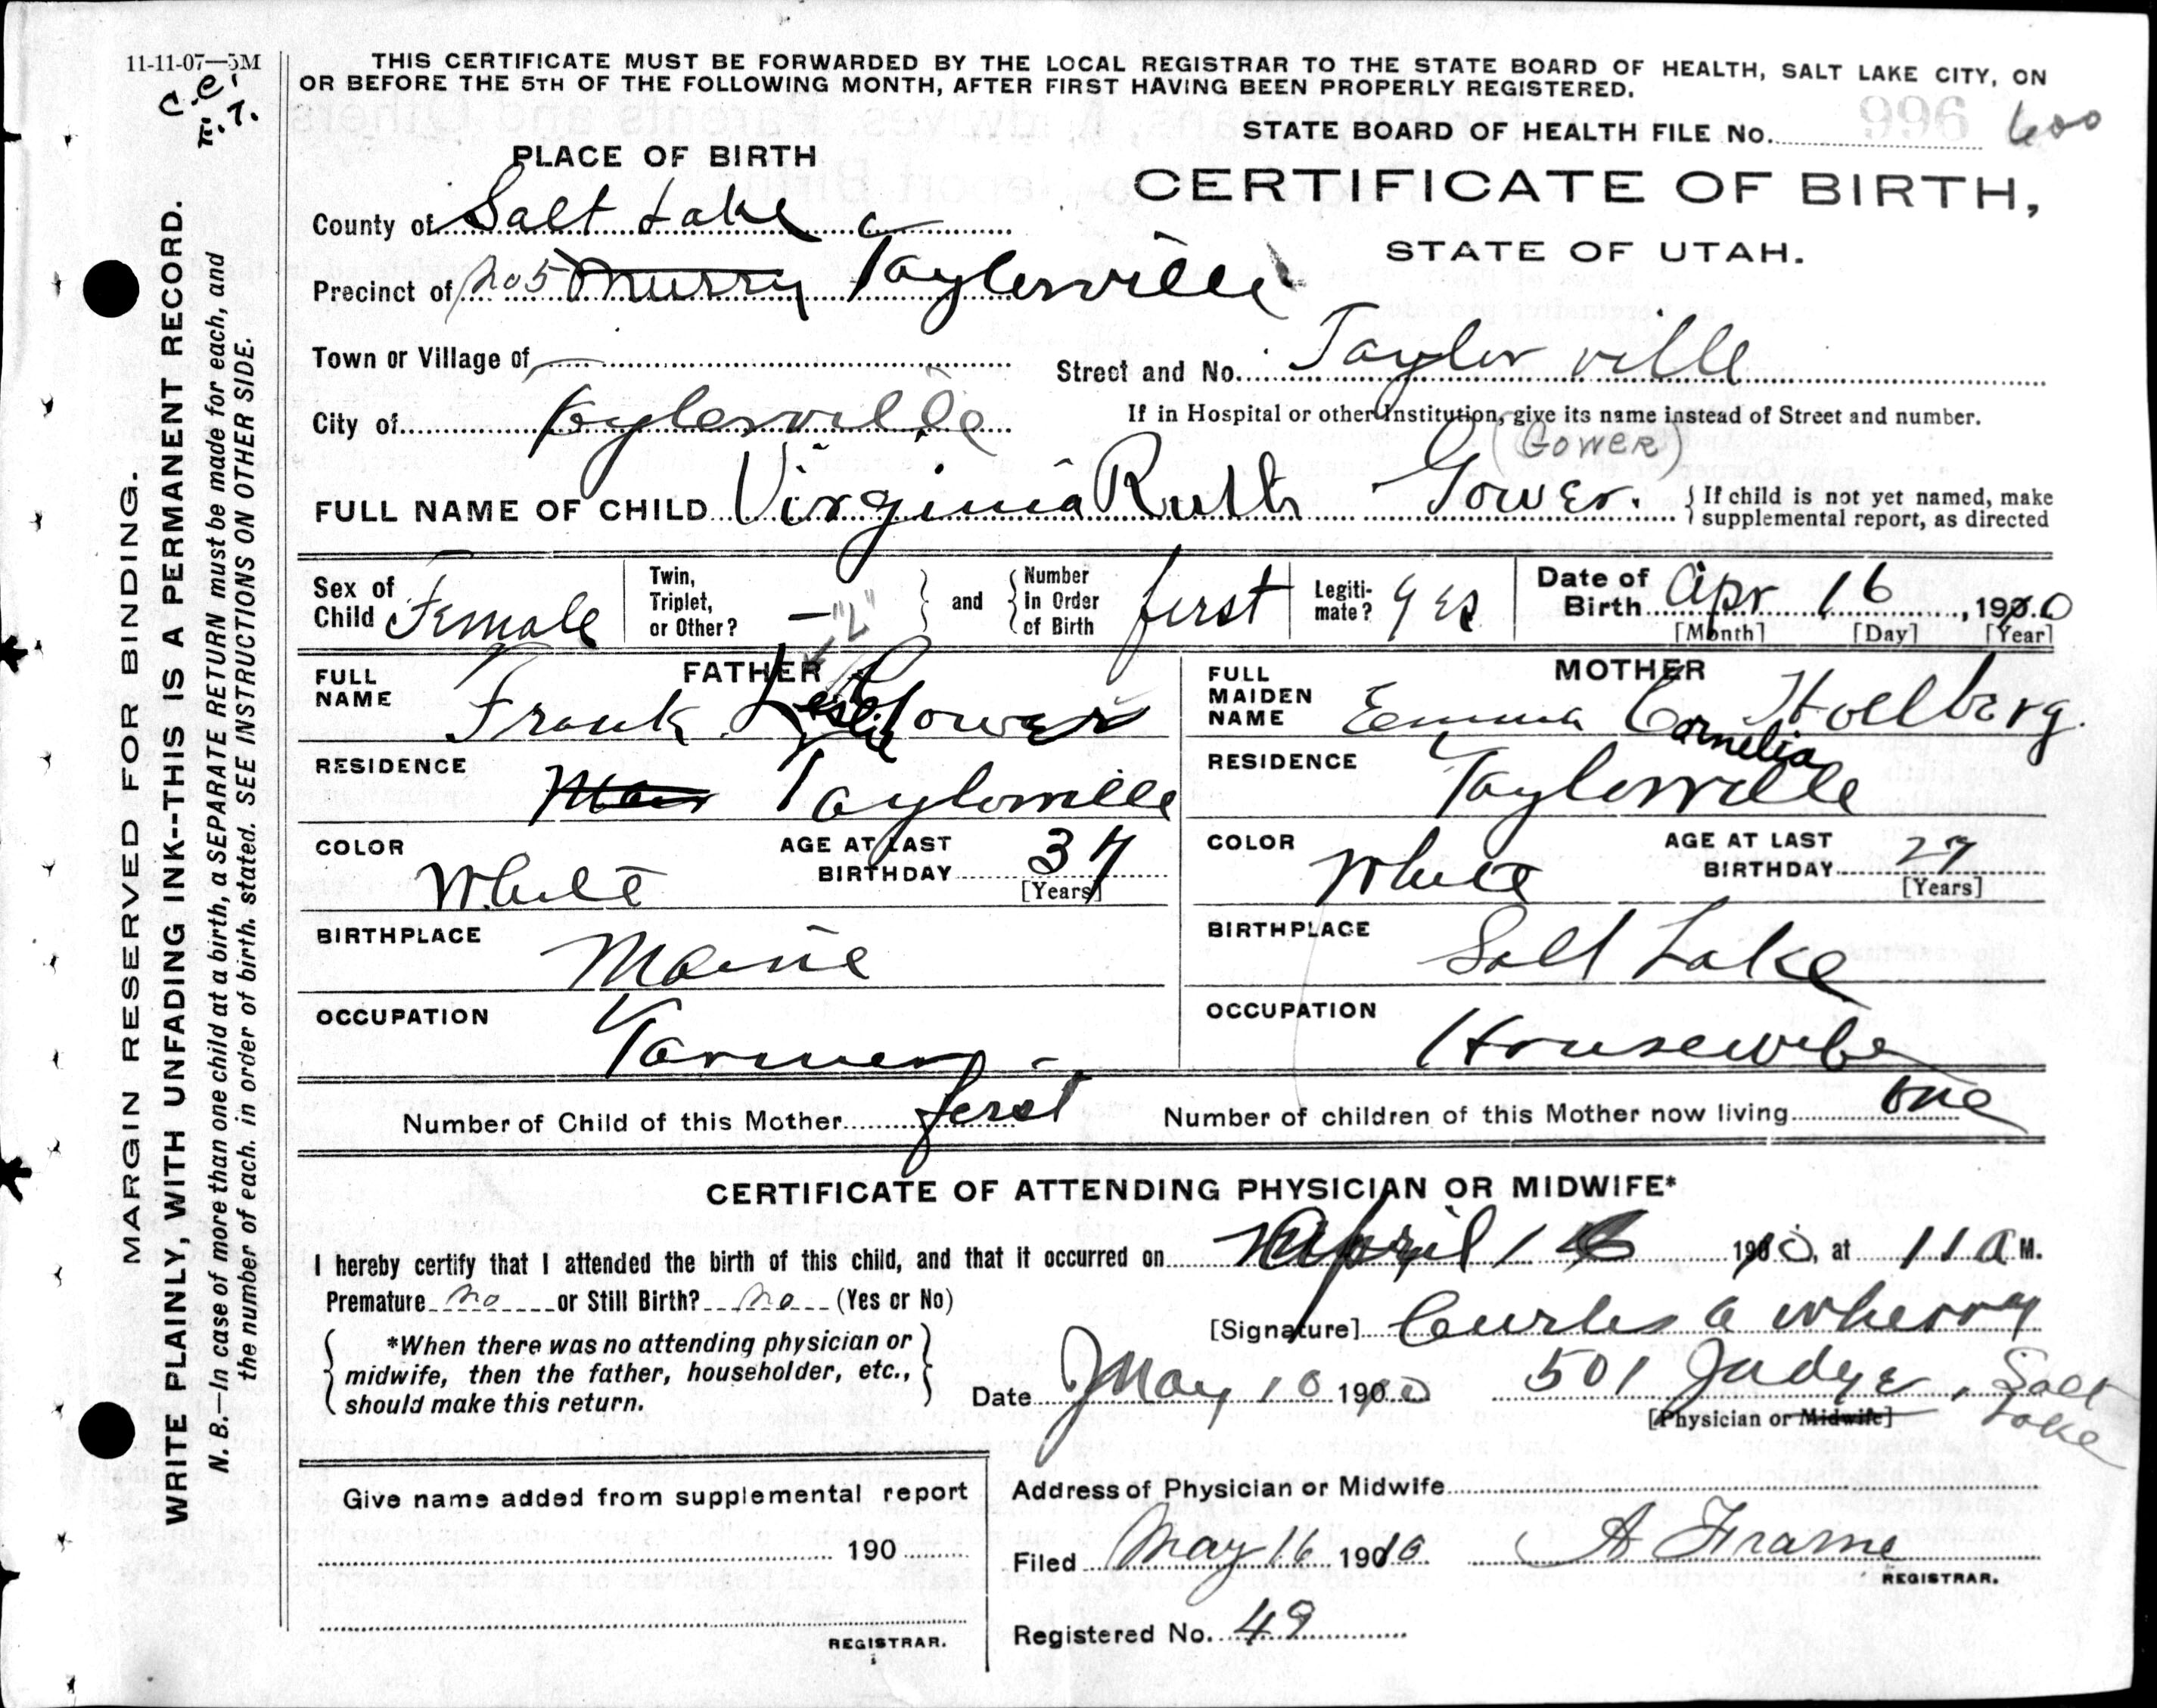 11-11-07—5M
C.C.
F.7.
THIS CERTIFICATE MUST BE FORWARDED BY THE LOCAL REGISTRAR TO THE STATE BOARD OF HEALTH, SALT LAKE CITY, ON
OR BEFORE THE 5TH OF THE FOLLOWING MONTH, AFTER FIRST HAVING BEEN PROPERLY REGISTERED.
STATE BOARD OF HEALTH FILE No. 996 600
PLACE OF BIRTH
CERTIFICATE OF BIRTH,
STATE OF UTAH.
County of Salt Lake
Precinct of No 5 Murry Taylorsville
Town or Village of
Street and No. Taylorville
City of Taylorsville
If in Hospital or other Institution, give its name instead of Street and number.
(GOWER)
FULL NAME OF CHILD Virginia Ruth Gower.
{ If child is not yet named, make
supplemental report, as directed
Sex of Child Female
Twin, Triplet, or Other? — "2"
and
Number in Order of Birth first
Legiti-mate? Yes
Date of Birth Apr 16, 1910
[Month] [Day] [Year]
FATHER
FULL NAME Frank Leslie Gower
RESIDENCE Taylorsville
COLOR White
AGE AT LAST BIRTHDAY 37
[Years]
BIRTHPLACE Maine
OCCUPATION Farmer
MOTHER
FULL MAIDEN NAME Emma Cornelia Hollberg.
RESIDENCE Taylorsville
COLOR White
AGE AT LAST BIRTHDAY 27
[Years]
BIRTHPLACE Salt Lake
OCCUPATION Housewife
Number of Child of this Mother first
Number of children of this Mother now living one
CERTIFICATE OF ATTENDING PHYSICIAN OR MIDWIFE*
I hereby certify that I attended the birth of this child, and that it occurred on April 16 1910, at 11 a M.
Premature No or Still Birth? No (Yes or No)
[Signature] Curles a Wherry
*When there was no attending physician or
midwife, then the father, householder, etc.,
should make this return.
Date May 10 1910 501 Judge, Salt Lake
[Physician or Midwife]
Give name added from supplemental report
190
REGISTRAR.
Address of Physician or Midwife
Filed May 16 1910 A Frame
REGISTRAR.
Registered No. 49
MARGIN RESERVED FOR BINDING.
WRITE PLAINLY, WITH UNFADING INK--THIS IS A PERMANENT RECORD.
N. B.—In case of more than one child at a birth, a SEPARATE RETURN must be made for each, and
the number of each. in order of birth. stated. SEE INSTRUCTIONS ON OTHER SIDE.